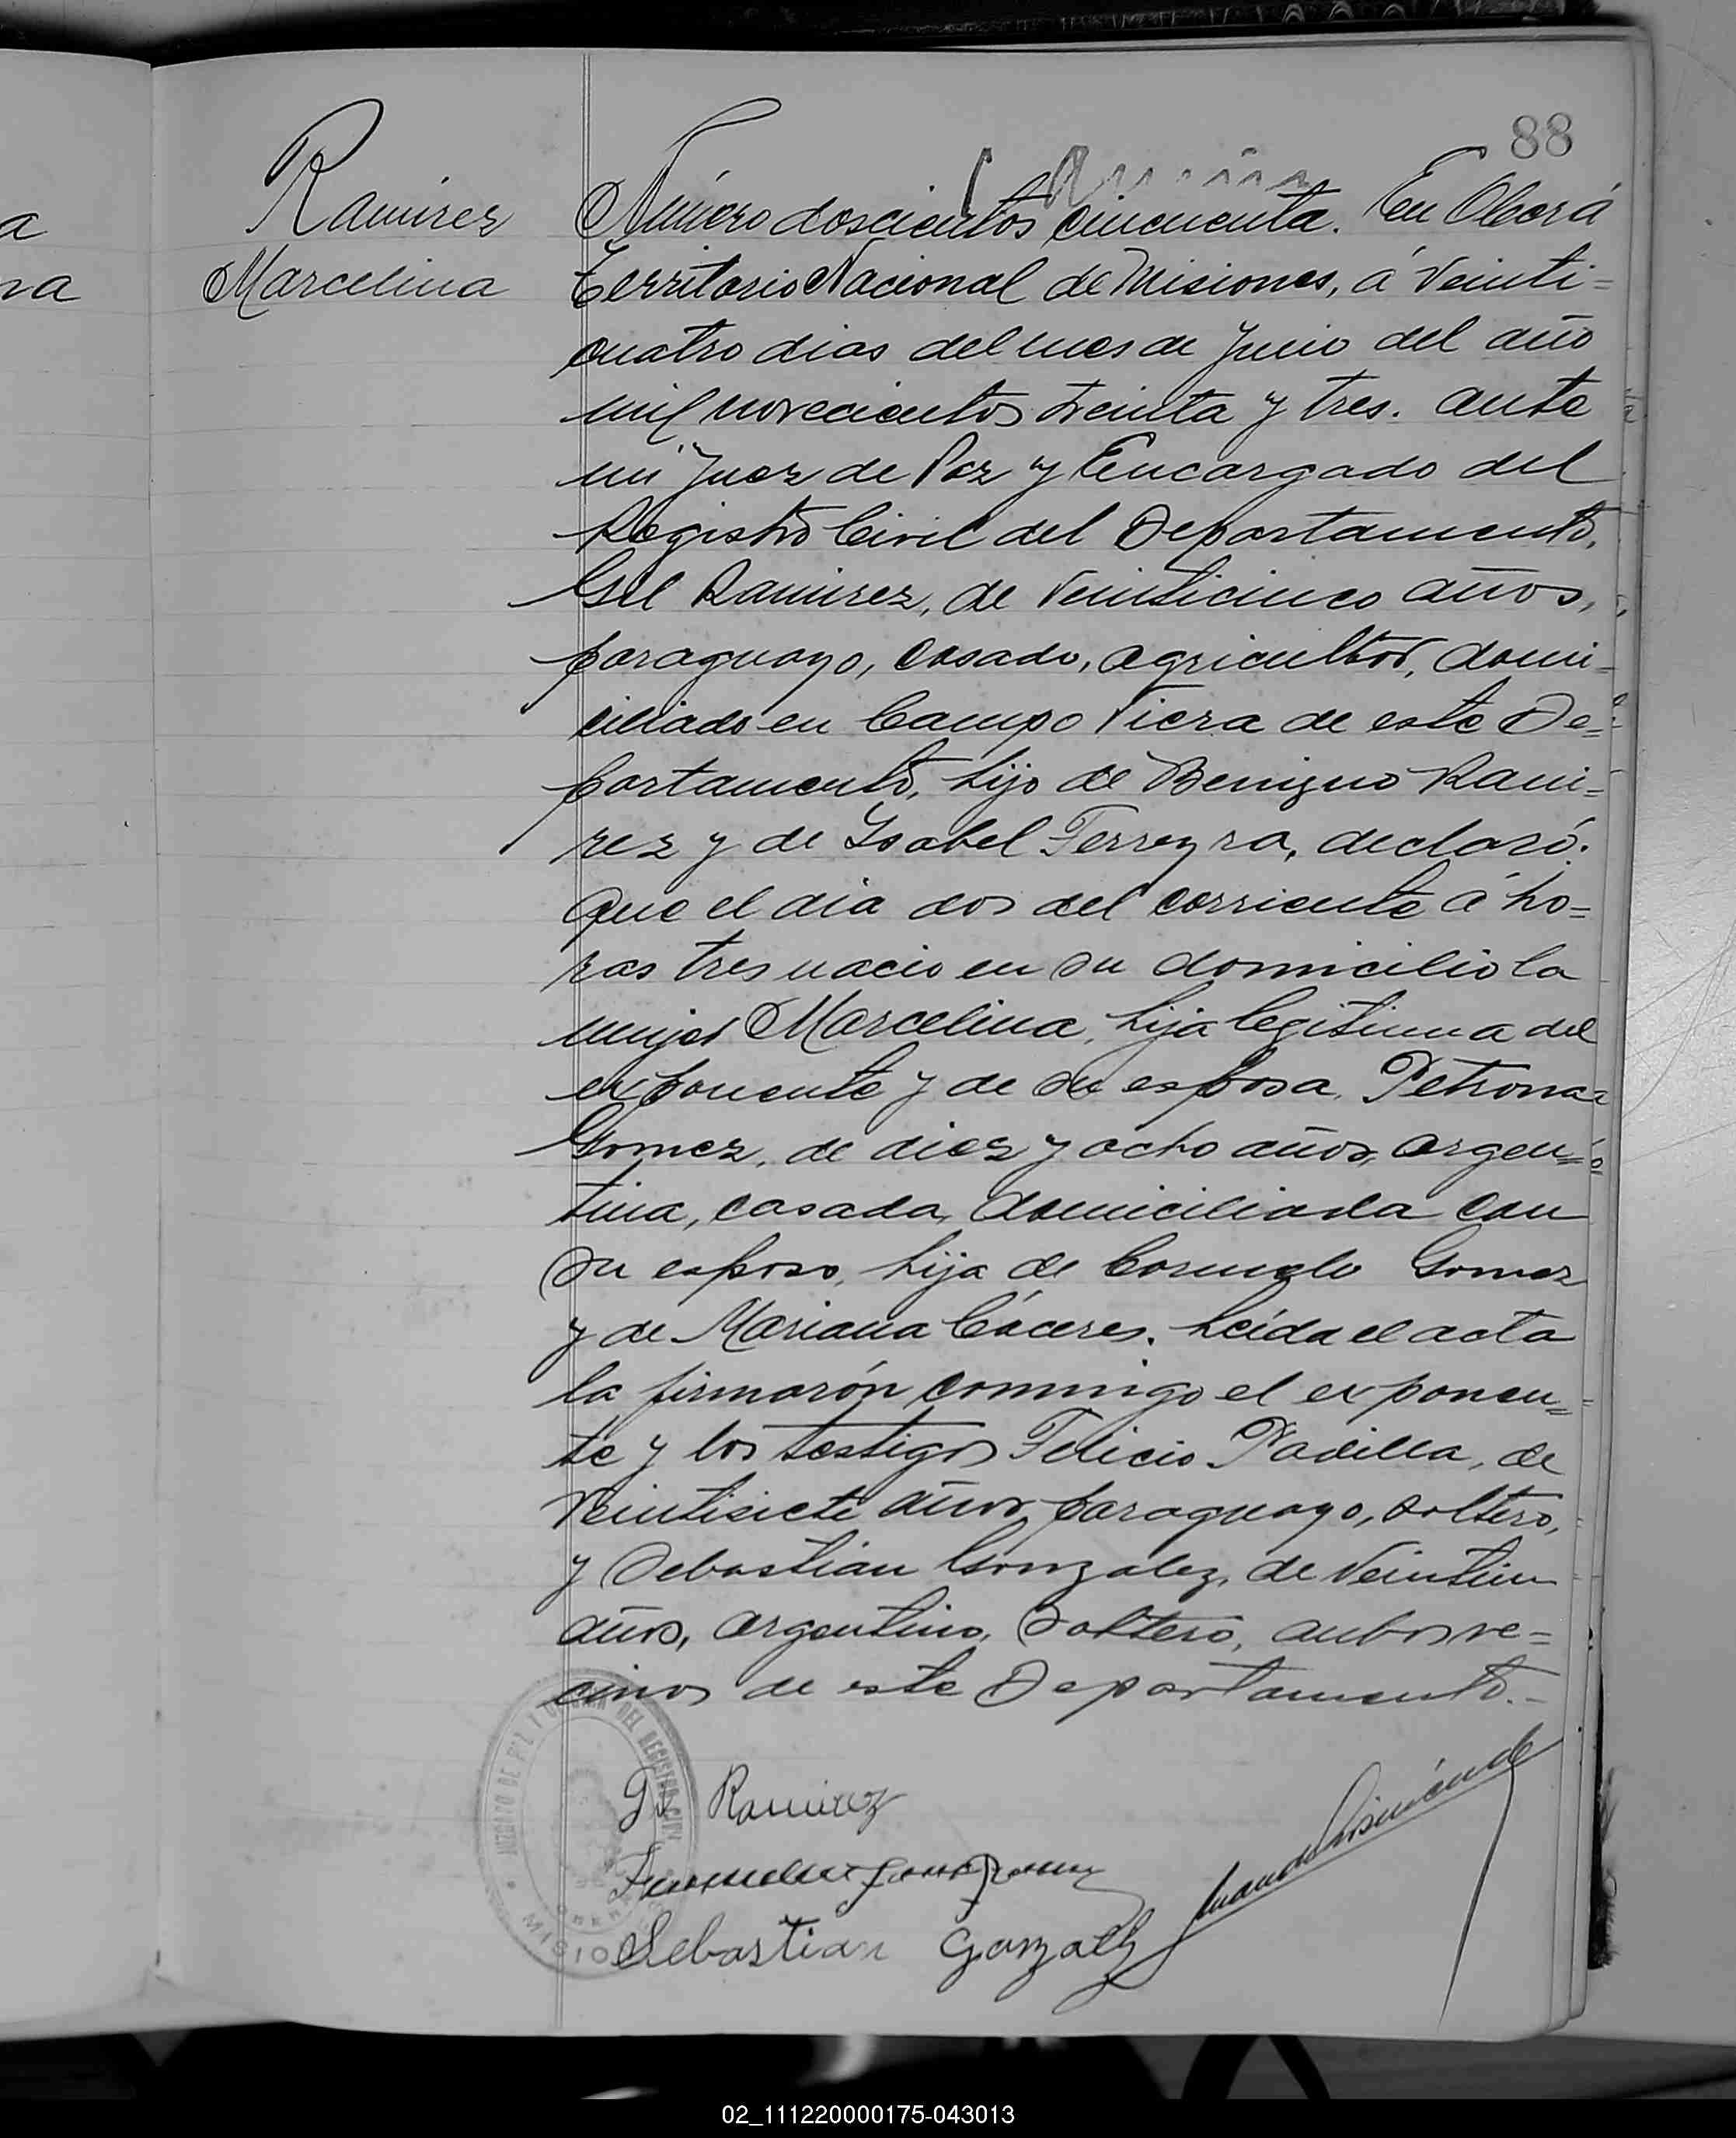 88
Ramirez
Marcelina
Número doscientos cincuenta. En Oberá
Territorio Nacional de Misiones, á veinti=
cuatro dias del mes de Junio del año
mil novecientos treinta y tres. ante
mi Juez de Paz y Encargado del
Registro Civil del Departamento,
Gil Ramirez, de veinticinco años,
paraguayo, casado, agricultor, domi-
ciliado en Campo Viera de este De=
partamento, hijo de Benigno Rami=
rez y de Ysabel Ferreyra, declaró:
Que el dia dos del corriente á ho=
ras tres nacio en su domicilio la
mujer Marcelina, hija legitima del
exponente y de su esposa, Petrona
Gomez, de diez y ocho años, argen=
tina, casada, domiciliada con
su esposo, hija de Gomez
y de Mariana Cáceres. Leida el acta
la firmarón conmigo el exponen=
te y los testigos Felicio Padilla, de
veintisiete años, paraguayo, soltero,
y Sebastian Gonzalez, de veintiun
años, argentino, soltero, ambos ve=
cinos de este Departamento.-
JUZGADO DE PAZ Y OFICINA DEL REGISTRO CIVIL
MISIO
G Ramirez
Sebastian Gonzalez
a
na
02_111220000175-043013